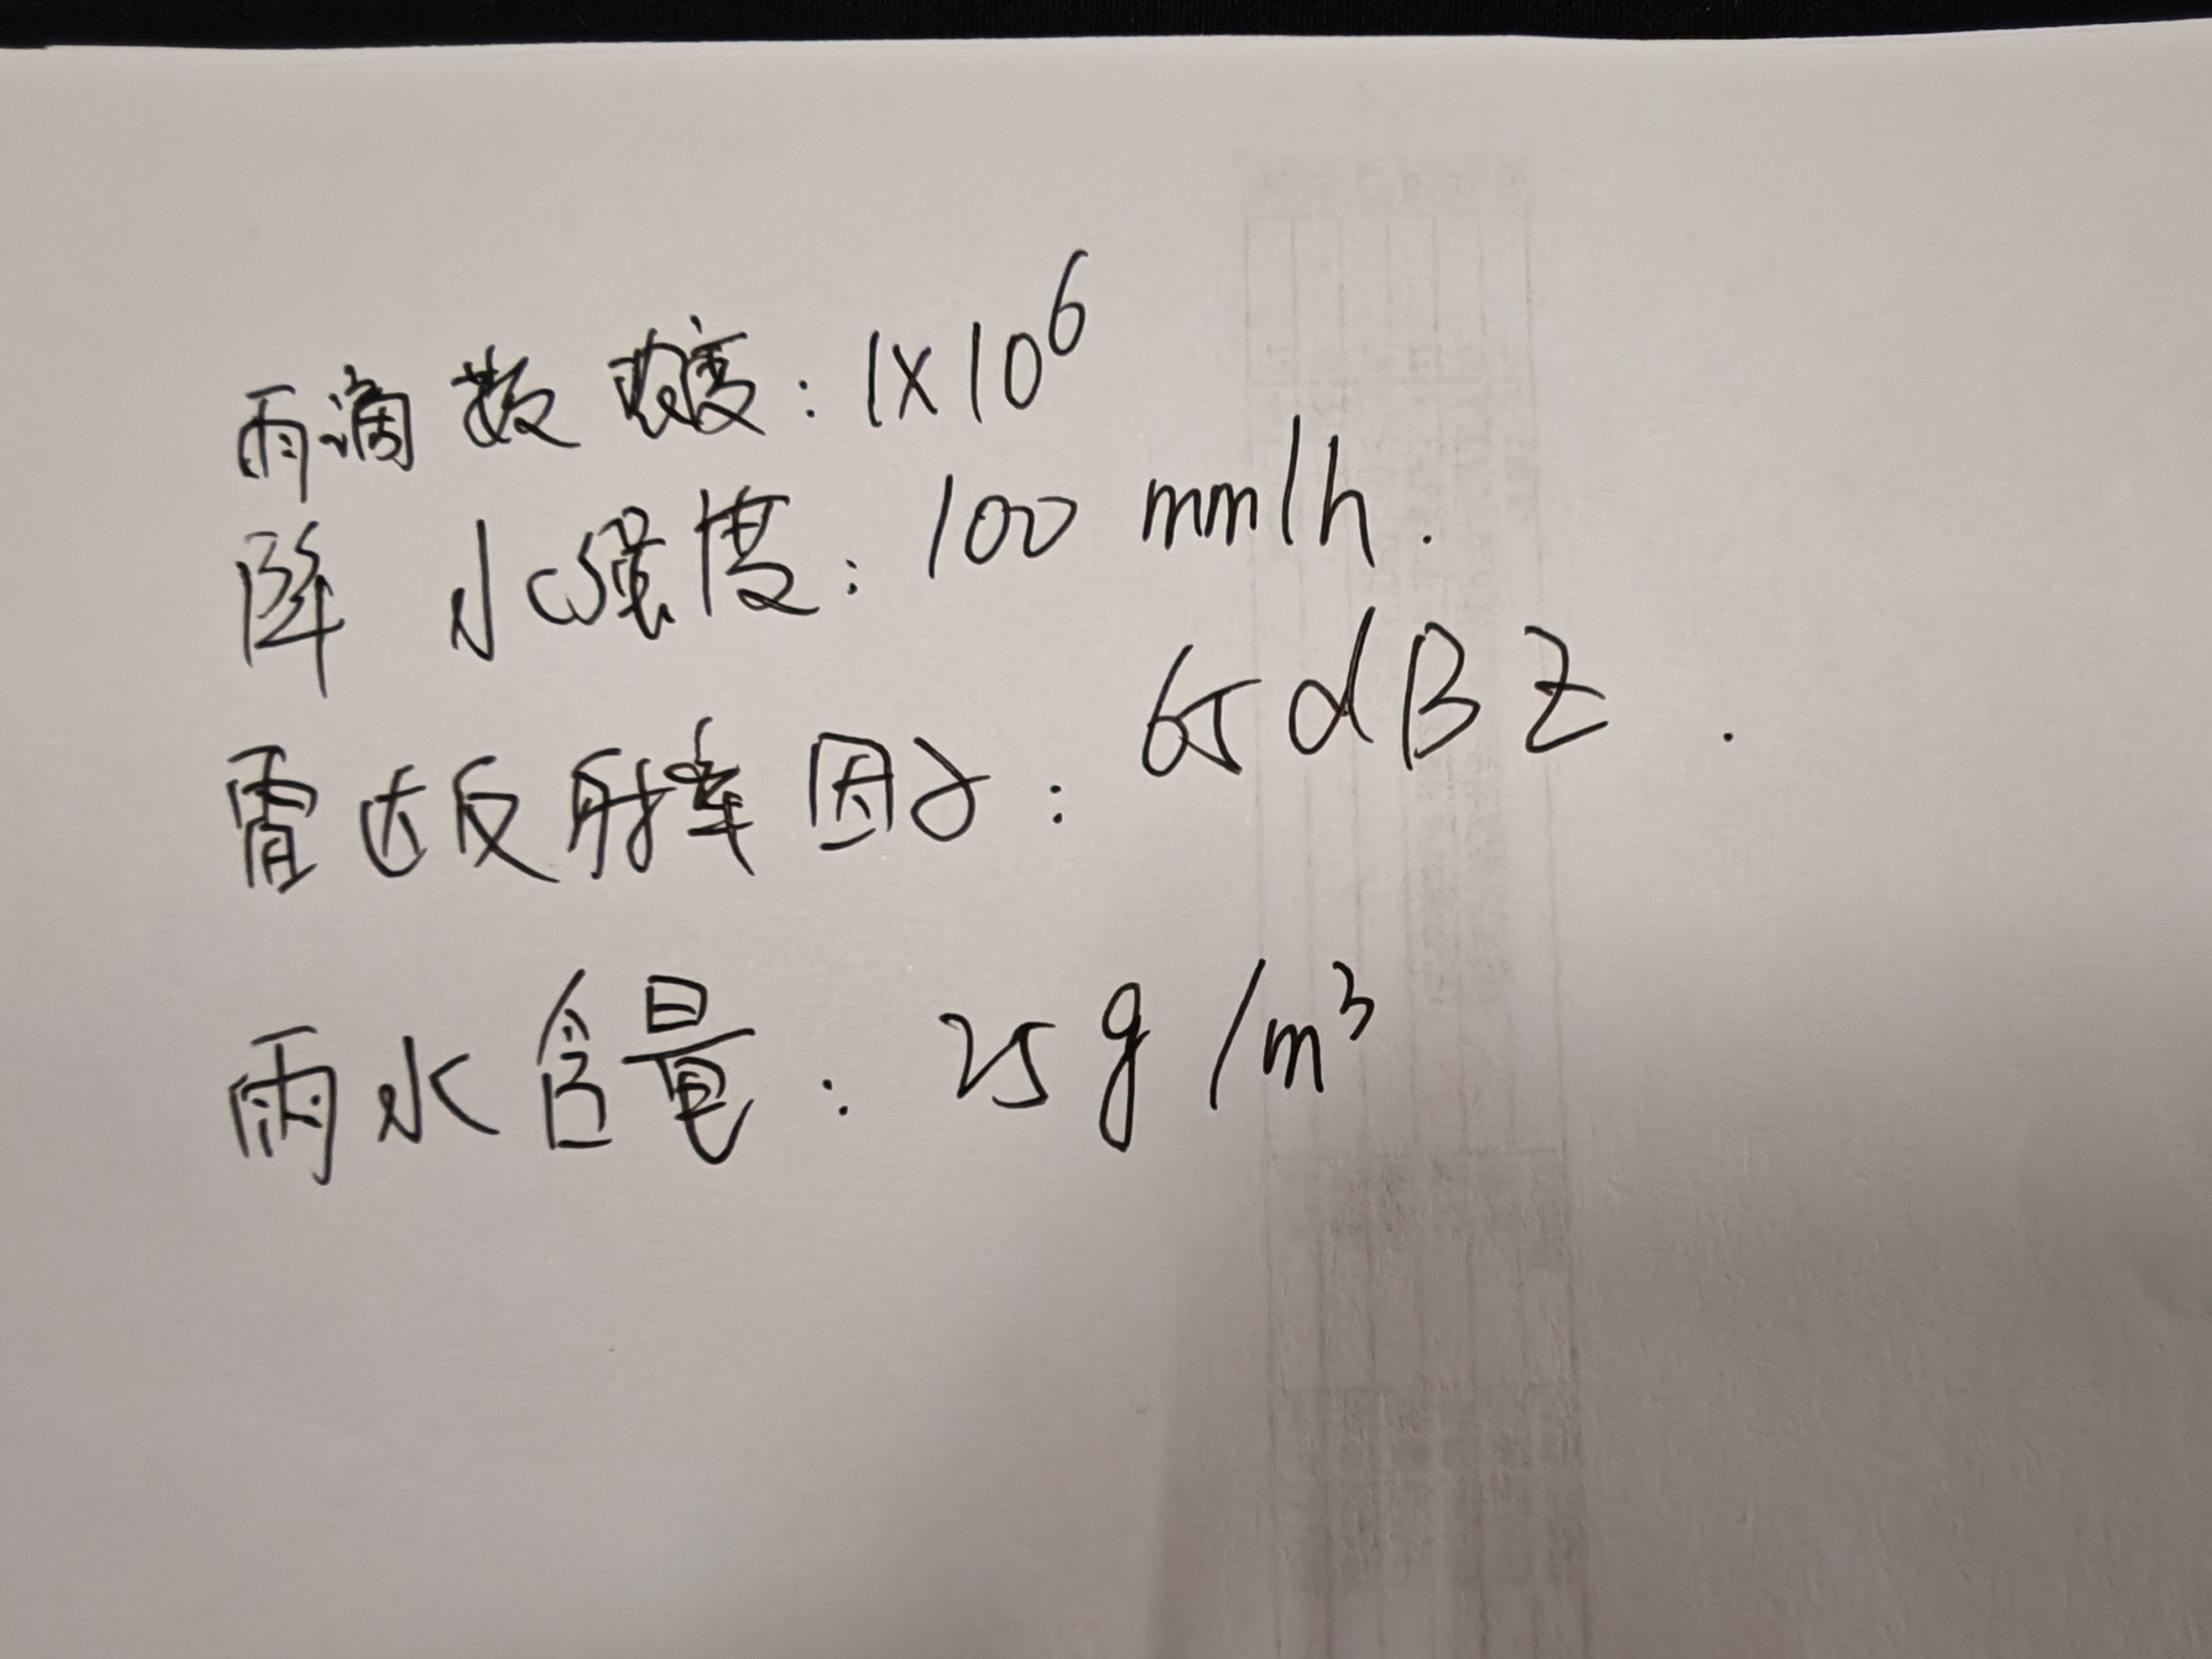 雨滴数浓度：1×10⁶
降水强度：100 mm/h.
雷达反射率因子：65dBZ.
雨水含量：25g/m³